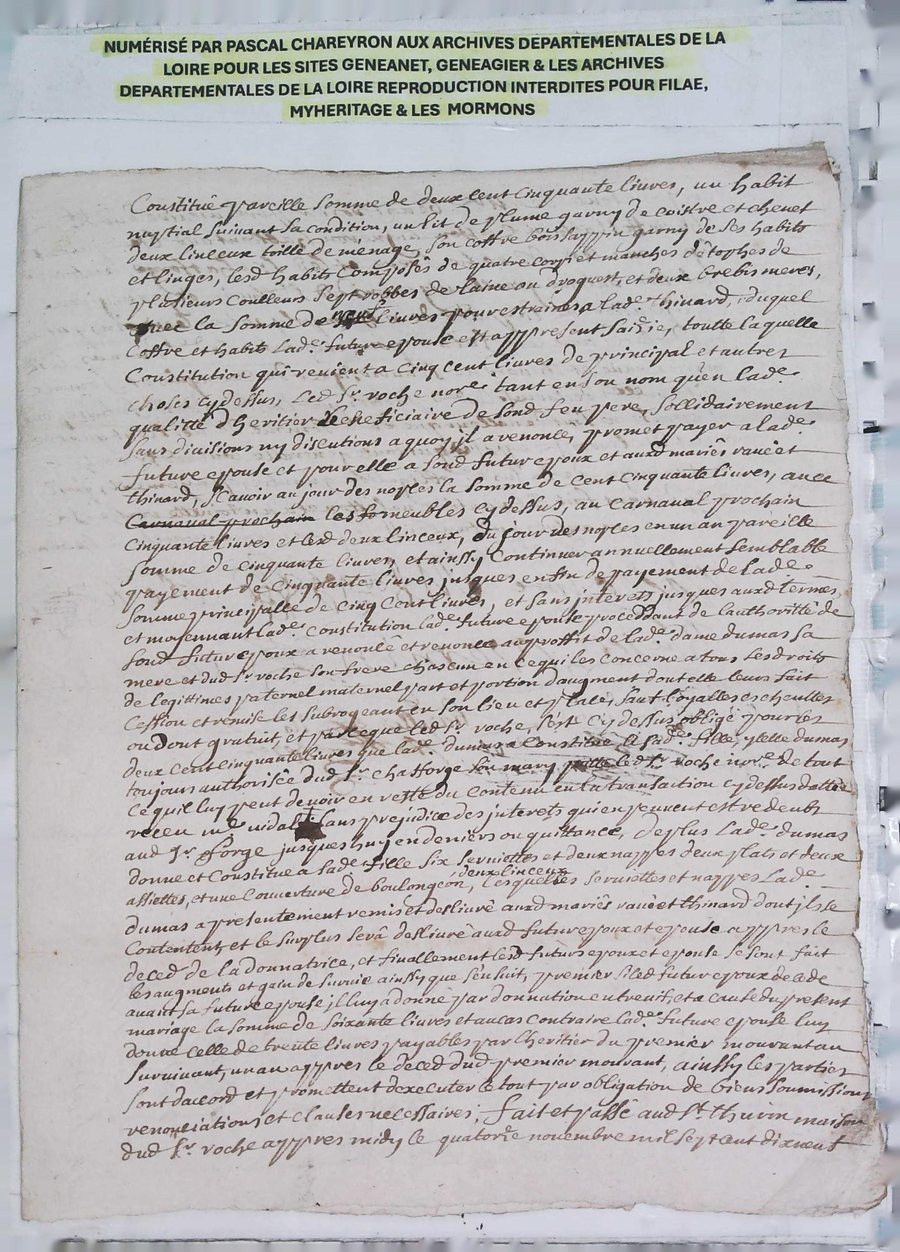 NUMÉRISÉ PAR PASCAL CHAREYRON AUX ARCHIVES DEPARTEMENTALES DE LA
LOIRE POUR LES SITES GENEANET, GENEAGIER & LES ARCHIVES
DEPARTEMENTALES DE LA LOIRE REPRODUCTION INTERDITES POUR FILAE,
MYHERITAGE & LES MORMONS
Constitué pareille somme de deux cent cinquante livres, un habit
nuptial suivant sa condition, un lit de plume garny de coittre et chenet
deux linceux toille de ménage, son coffre bois sappin garny de ses habits
et linges, lesd habits composés de quatre corps et manches d'étophes de
plusieurs coulleurs sept robbes de laine ou droguest, et deux brebis meres,
avec la somme de livres pour estraines a lade thinard, duquel
coffre et habits lade future epouse est appresent saisie, toutte laquelle
Constitution qui revient a cinq cent livres de principal et autres
choses cydessus, led sr roche nore tant en son nom qu'en lade
qualitté d'heritier beneficiaire de sond feu pere, sollidairement
sans divisions ny discutions a quoy il a renoncé, promet payer a lade
future epouse et pour elle a sond futur epoux et auxd mariés et
thinard, scavoir au jour des nopces la somme de cent cinquante livres, avec
Carnaval prochain lesd meubles cydessus, au carnaval prochain
cinquante livres et lesd deux linceux, du jour des nopces en un an pareille
somme de cinquante livres, et ainssy continuer annuellement semblable
payement de cinquante livres jusques enfin de payement de lade
somme principalle de cinq cent livres, et sans interets jusques auxd termes,
et moyennant lade constitution lade future epouse procedant de lauthoritté de
sond futur epoux a renoncé et renonce au proffit de lade dame dumas sa
mere et dud sr roche son frere chascun en ce qui les concerne a tous ses droits
de legittimes paternel maternel part et portion d'augment dont elle leurs fait
Cession et remise les subrogeant en son lieu et place, sauf loyalles escheuttes
ou dont gratuit, et parce que led sr roche, s'est cydessus obligé pour les
deux cent cinquante livres que lade dumas a constitué a sade fille, ycelle dumas
toujours authorisée dud sr chafforge son mary led sr roche nore de tout
ce quil luy peut devoir en reste du contenu en la transaction cydessus dattée
receu me vidal sans prejudice des interets qui en peuvent estre deubs
aud sr forge jusques huy en deniers ou quittance, de plus lade dumas
donne et constitue a sade fille six serviettes et deux nappes deux plats et deux
assiettes, et une couverture de boulongeon, deux linceux lesquelles serviettes et nappes lade
dumas a presentement remis et deslivré auxd mariés et thinard dont ils se
contentent, et le surplus sera deslivré auxd futur epoux et epouse appres le
deced de la donnatrice, et finallement lesd futurs epoux et epouse se sont fait
les augments et gain de survie ainssy que s'ensuit, premier si led futur epoux decede
avant sa future epouse il luy a donné par donnation entre vif, et a cause du present
mariage la somme de soixante livres et au cas contraire lade future epouse luy
donne celle de trente livres payables par l'heritier du premier mourant au
survivant, un an appres le deced dud premier mourant, ainssy les parties
sont daccord et promettent d'executer le tout par obligation de biens soumissions
renonciations et clauses necessaires, fait et passé aud st thurin maison
dud sr roche appres midy le quatorze novembre mil sept cent dixneuf